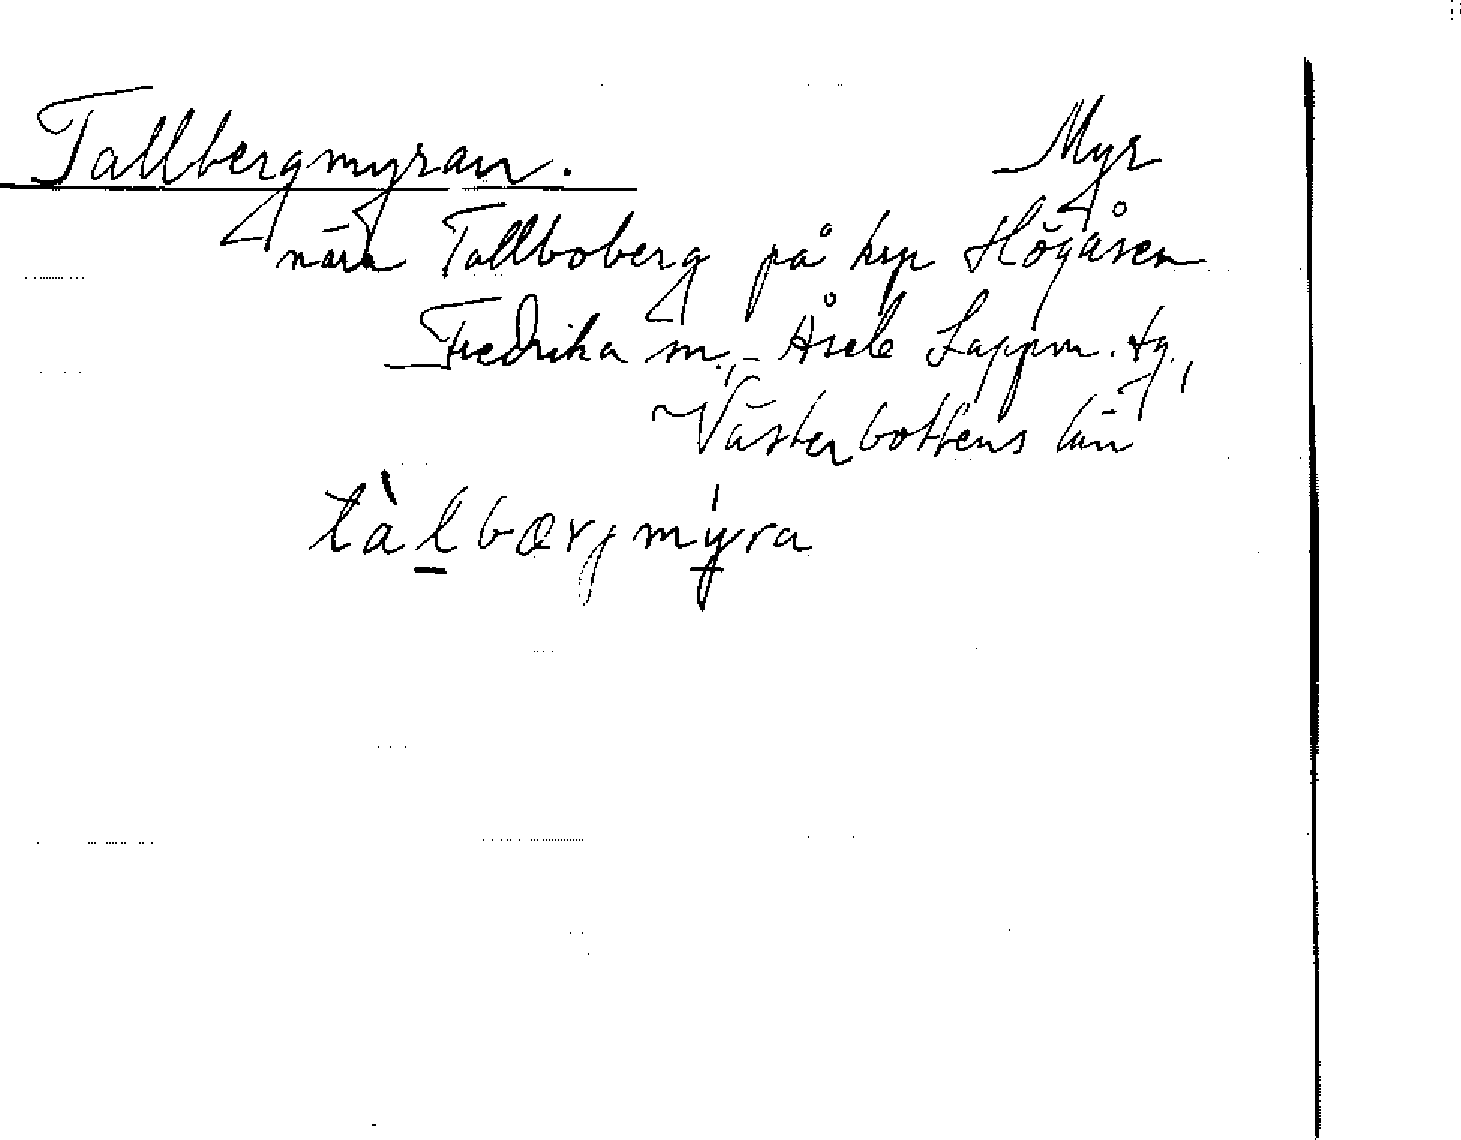 Tallbergmyran. Myr
nära Tallboberg på krp Högåsen
Fredrika sn., Åsele Lappm. tg.,
Västerbottens län
tàlbærjmýra